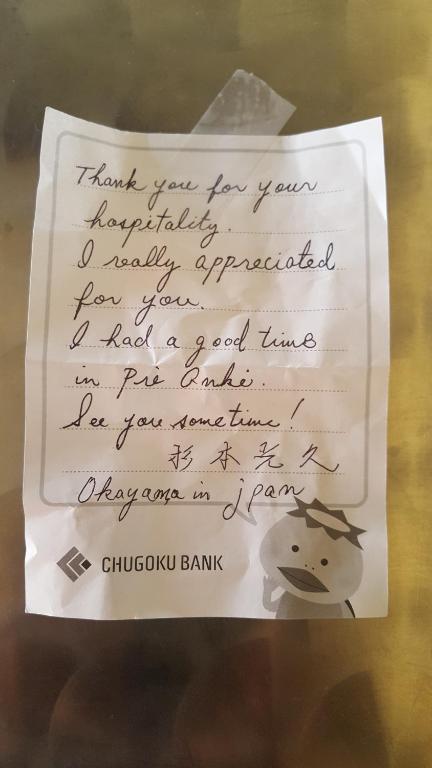 Thank you for your
hospitality.
I really appreciated
for you.
I had a good time
in Pié Anké.
See you sometime!
杉本光久
Okayama in jpan
CHUGOKU BANK